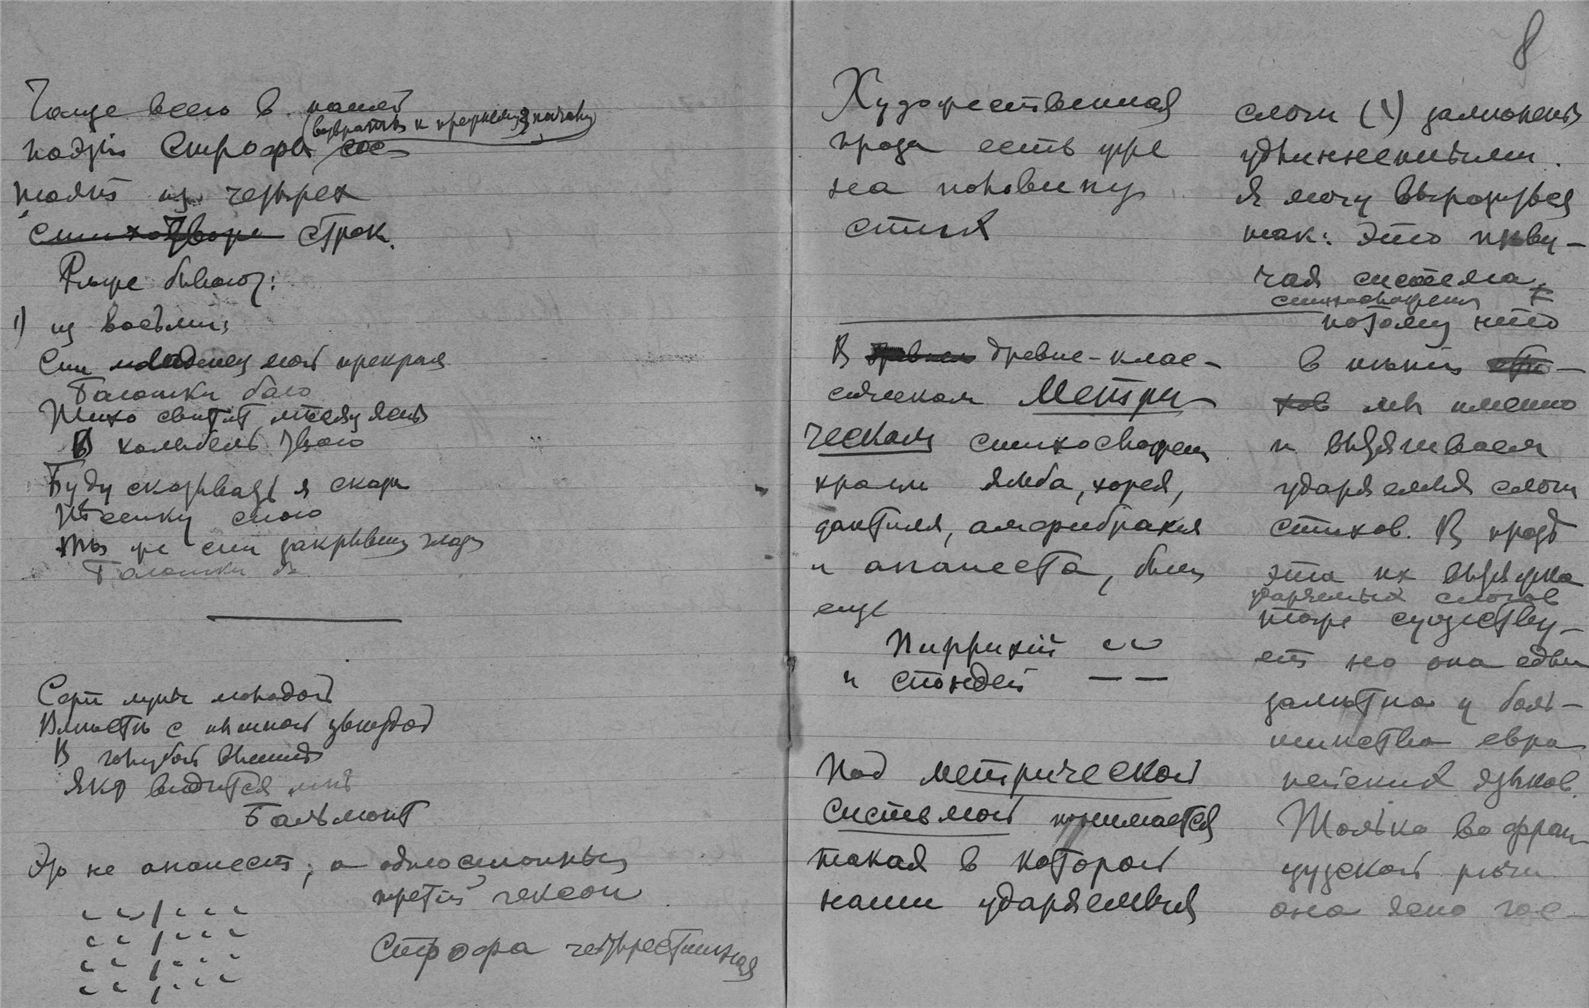 Чаще всего в нашей
(возвратъ к прежнему началу)
поэзіи Строфы сос-
тоятъ из четырех
стихотворн строк.
Рѣже бывают:
1) из восьми:
Спи младенец мой прекрасн
Баюшки баю
Тихо свѣтит мѣсяц ясн
В колыбель твою
Буду сказывать я сказк
Пѣсенку спою
Ты же спи закрывши глазк
Баюшки б
Серп луны молодой
Вмѣстѣ с пышной звѣздой
В голубой вышинѣ
Ярко видится мнѣ
Бальмонт
Это не анапест, а односложный
третій пэон
◡◡/◡◡◡
◡◡/◡◡◡
◡◡/◡◡◡
◡◡/◡◡◡
Строфа четырестишная
8
Художественная
проза есть уже
на половину
стих
В древне-клас-
сическом Метри-
ческом стихосложен
кроме ямба, хорея,
дактиля, амфибрахія
и анапеста, были
еще
Пиррихій ◡◡
и спондей — —
Под метрической
системой понимается
такая в которой
наши ударяемыя
слоги (\) замѣнены
удлиненными.
Я могу выразиться
так: Это пѣву-
чая система
стихосложения
потому что
в пѣніи
мы именно
и вытягиваем
ударяемыя слоги
стихов. В прозѣ
эта их вытяжка
ударяемых слогов
тоже существу-
ет но она едва
замѣтна у боль-
шинства евро
пейских языков.
Только во фран
цузской рѣчи
она ясно гос-